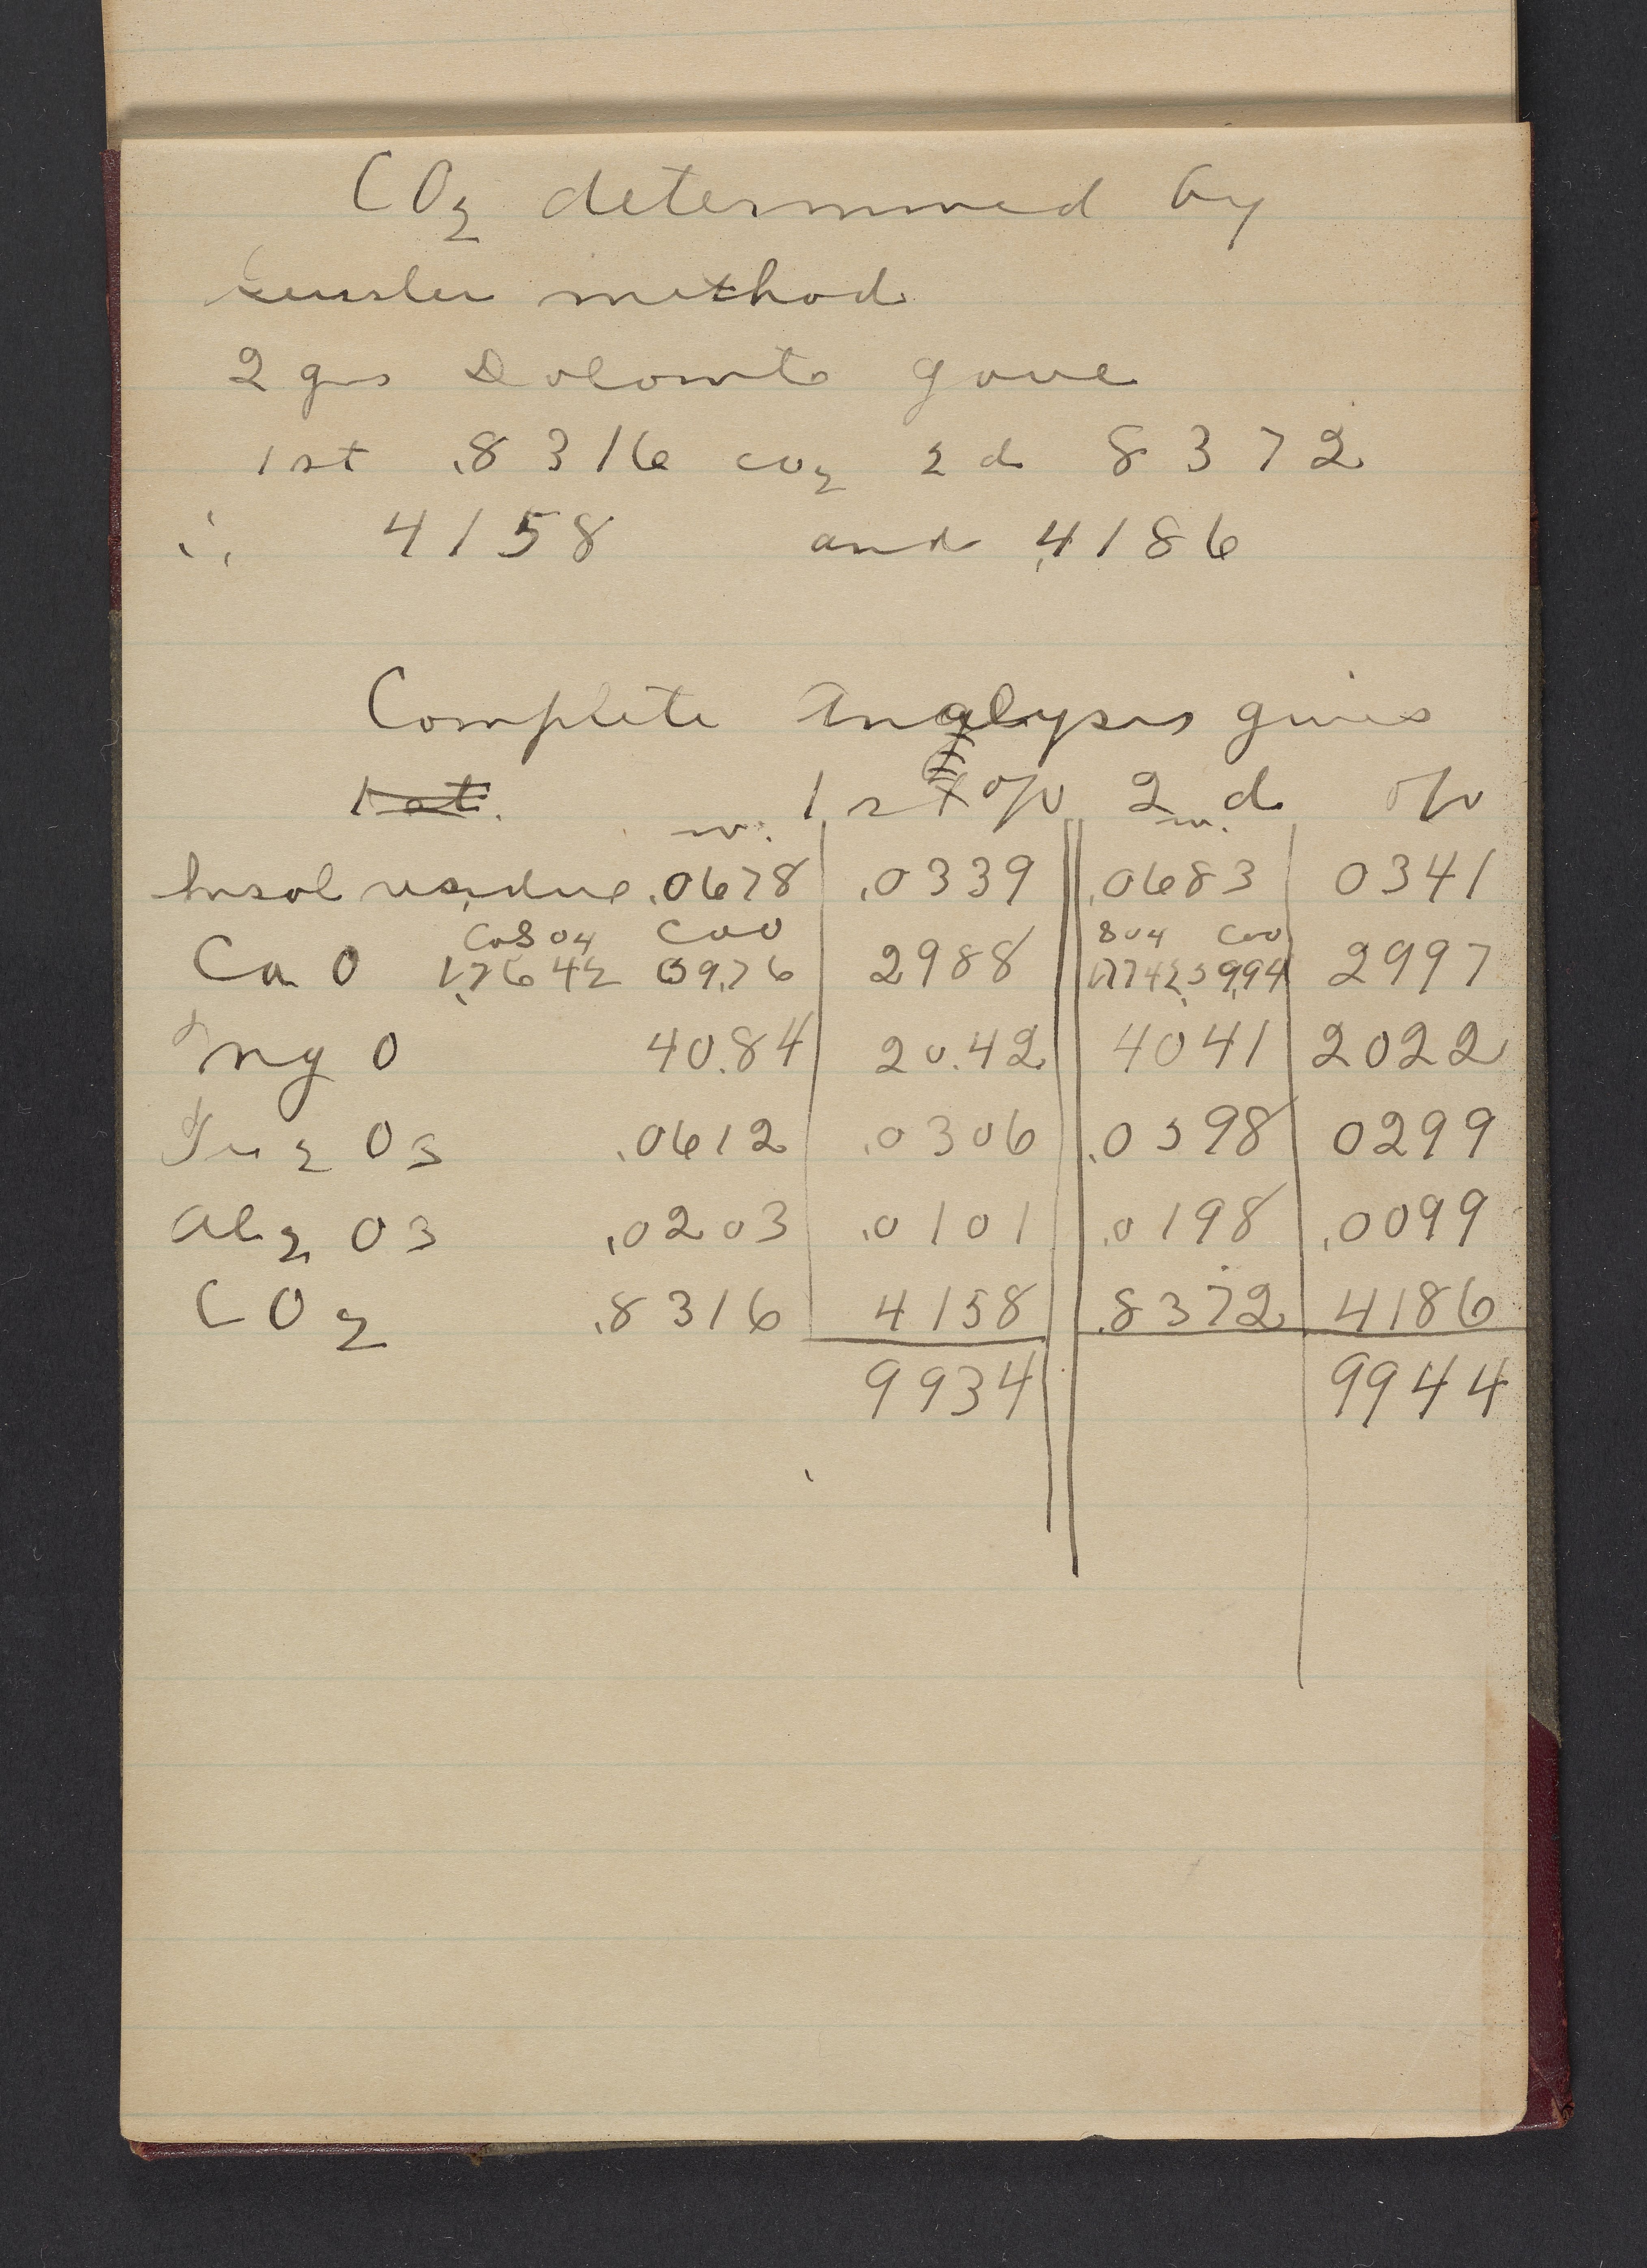 CO2 determined by
method
2 gms Dolomite gave
1st .8316 CO2 2d 8372
∴ 4158 and .4186
Complete Analysis gives
1st. 1st % 2d %
w. w.
Insol residue .0678 .0339 .0683 0341
CaSO4 CaO SO4 CaO
CaO 1.7642 5976 2988 5994 2997
MgO 40.84 20.42 4041 2022
Fe2O3 .0612 .0306 .0598 0299
Al2O3 .0203 .0101 .0198 .0099
CO2 .8316 4158 .8372 4186
9934 9944